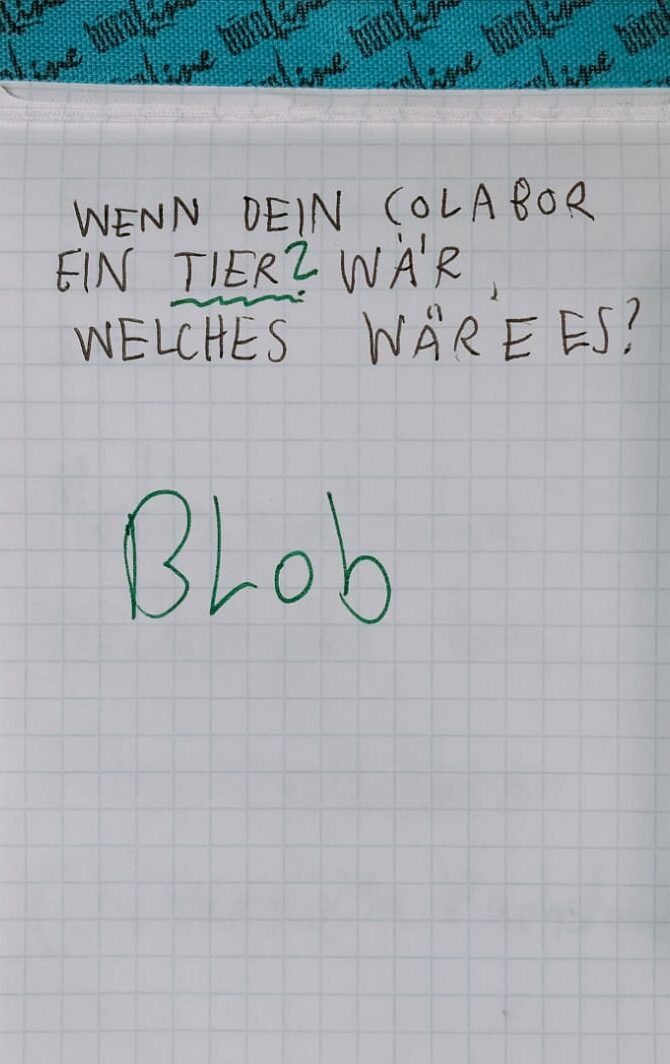 büroLine büroLine büroLine büroLine büroLine
WENN DEIN COLABOR
EIN TIER? WÄR,
WELCHES WÄRE ES?
BLob